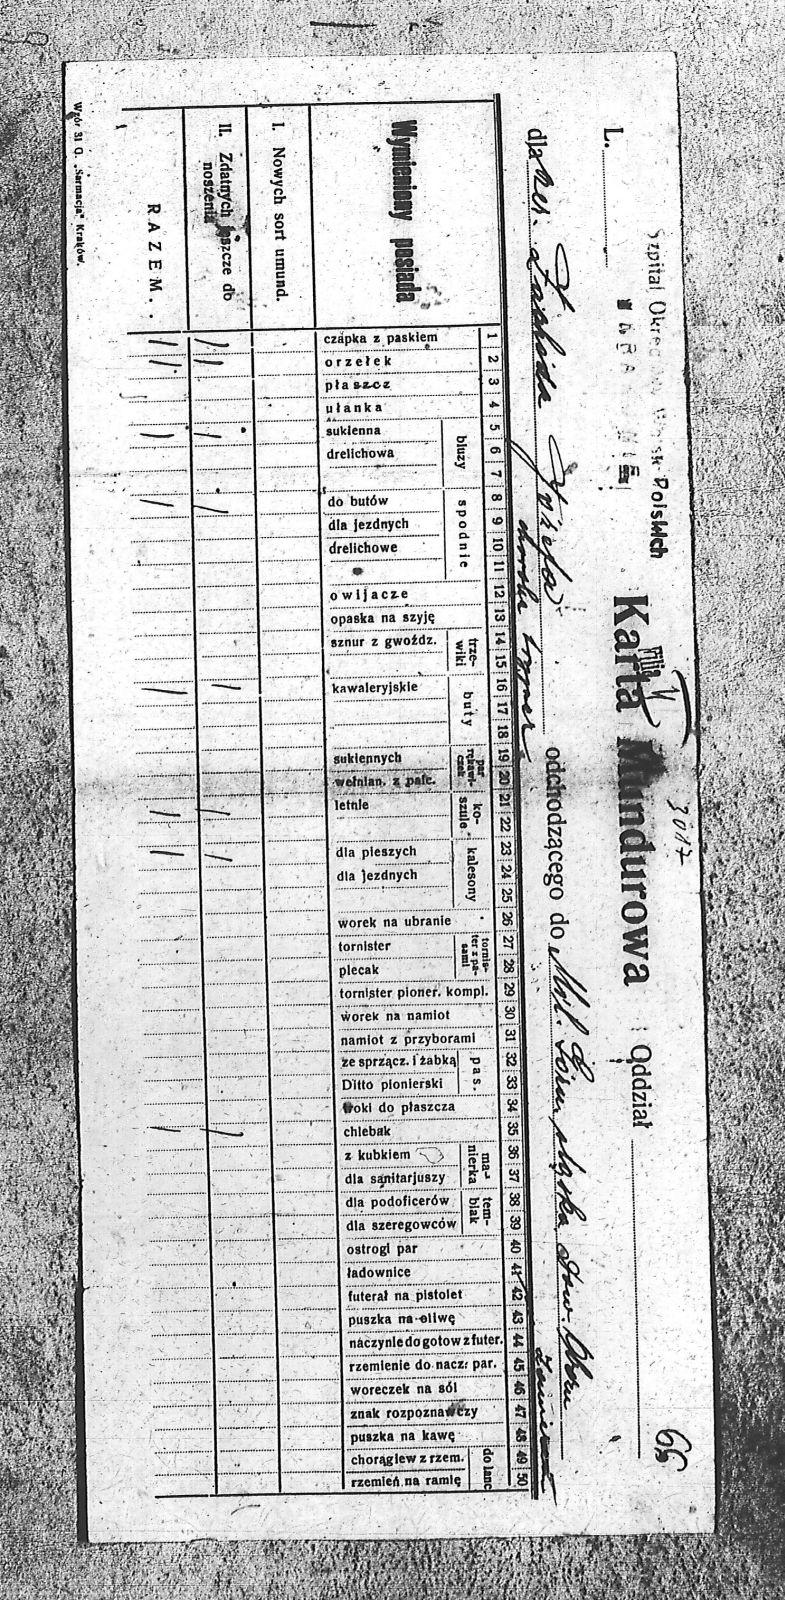 66
3017
Szpital Wojsk Polskich
L. Karta Mundurowa Oddział
dla Józefa odchodzącego do
Wymieniony posiada
I. Nowych sort umund.
II. Zdatnych jeszcze do noszenia
RAZEM.
1 czapka z paskiem
2 orzełek
3 płaszcz
4 ułanka
bluzy
5 sukienna
6 drelichowa
7
spodnie
8 do butów
9 dla jezdnych
10 drelichowe
11
12 owijacze
13 opaska na szyję
trzewiki
14 sznur z gwoźdz.
15
buty
16 kawaleryjskie
17
18
par rękawiczek
19 sukiennych
20 wełnian. z palc.
koszule
21 letnie
22
kalesony
23 dla pieszych
24 dla jezdnych
25
26 worek na ubranie
tornister z pasami
27 tornister
28 plecak
29 tornister pioner. kompl.
30 worek na namiot
31 namiot z przyborami
pas.
32 ze sprzącz. i żabką
33 Ditto pionierski
34 troki do płaszcza
35 chlebak
manierka
36 z kubkiem
37 dla sanitarjuszy
temblak
38 dla podoficerów
39 dla szeregowców
40 ostrogi par
41 ładownice
42 futerał na pistolet
43 puszka na oliwę
44 naczynie do gotow z futer.
45 rzemienie do nacz. par.
46 woreczek na sól
47 znak rozpoznawczy
48 puszka na kawę
do lanc
49 chorągiew z rzem.
50 rzemień na ramię
Wzór 31 O. „Sarmacja" Kraków.